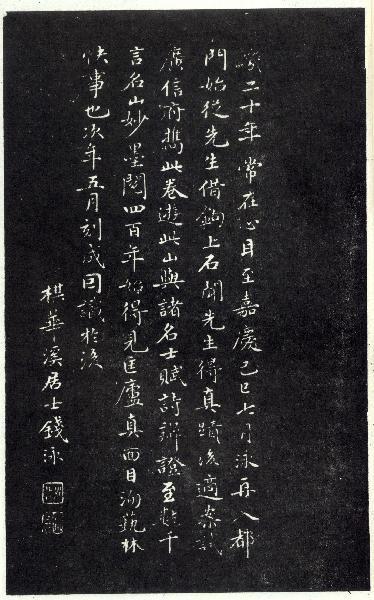 歲二十年常在心目至嘉慶己巳七月泳再入都
門始從先生借鉤上石聞先生得真蹟後適案試
廣信府攜此卷遊此山與諸名士賦詩辨證至數千
言名山妙墨閱四百年始得見匡廬真面目洵藝林
快事也次年五月刻成因識於後
棋華溪居士錢泳